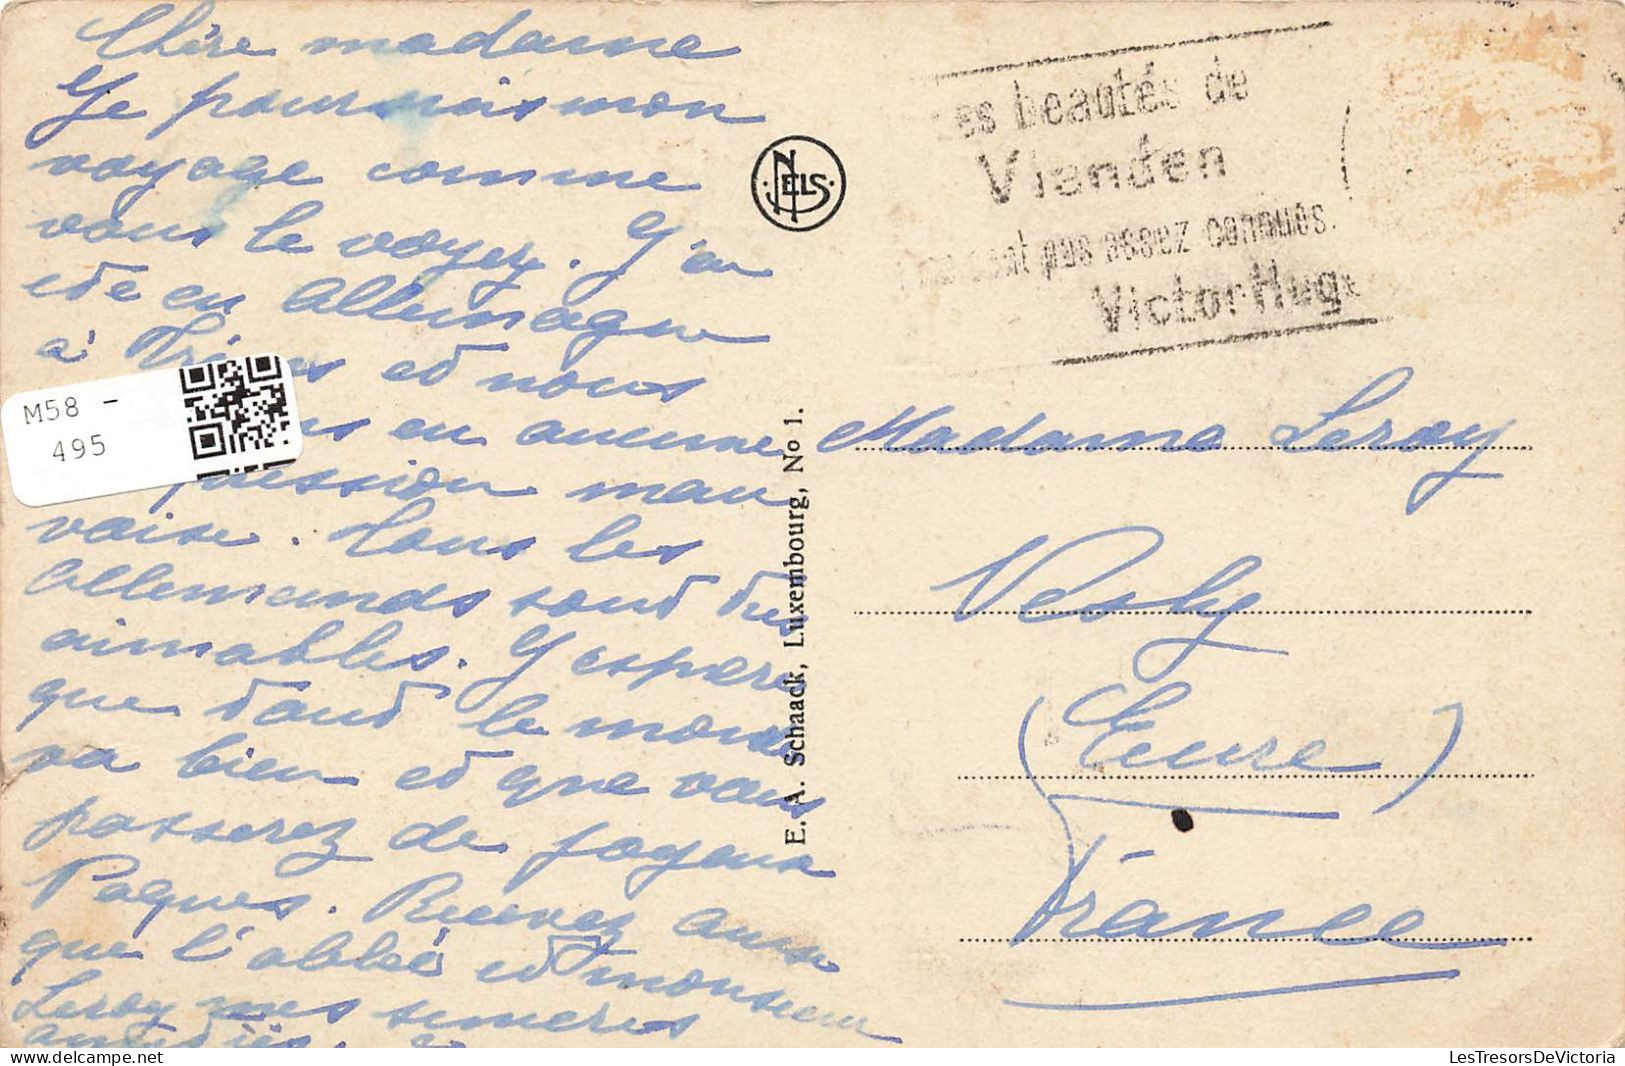 Chère madame
Je poursuis mon
voyage comme
vous le voyez. J'ai
été en Allemagne
à et nous
en aucune
pression mau
vaise. Tous les
Allemands sont très
aimables. J'espère
que tout le monde
va bien et que vous
passerez de joyeux
Paques. Recevez ainsi
que l'abbé et monsieur
Leroy mes sincères
M58 -
495
NELS
E. A. Schaack, Luxembourg, No 1.
Les beautés de
Vianden
ne sont pas assez connues.
Victor Hugo
Madame Leroy
Vesly
(Eure)
France
LesTresorsDeVictoria